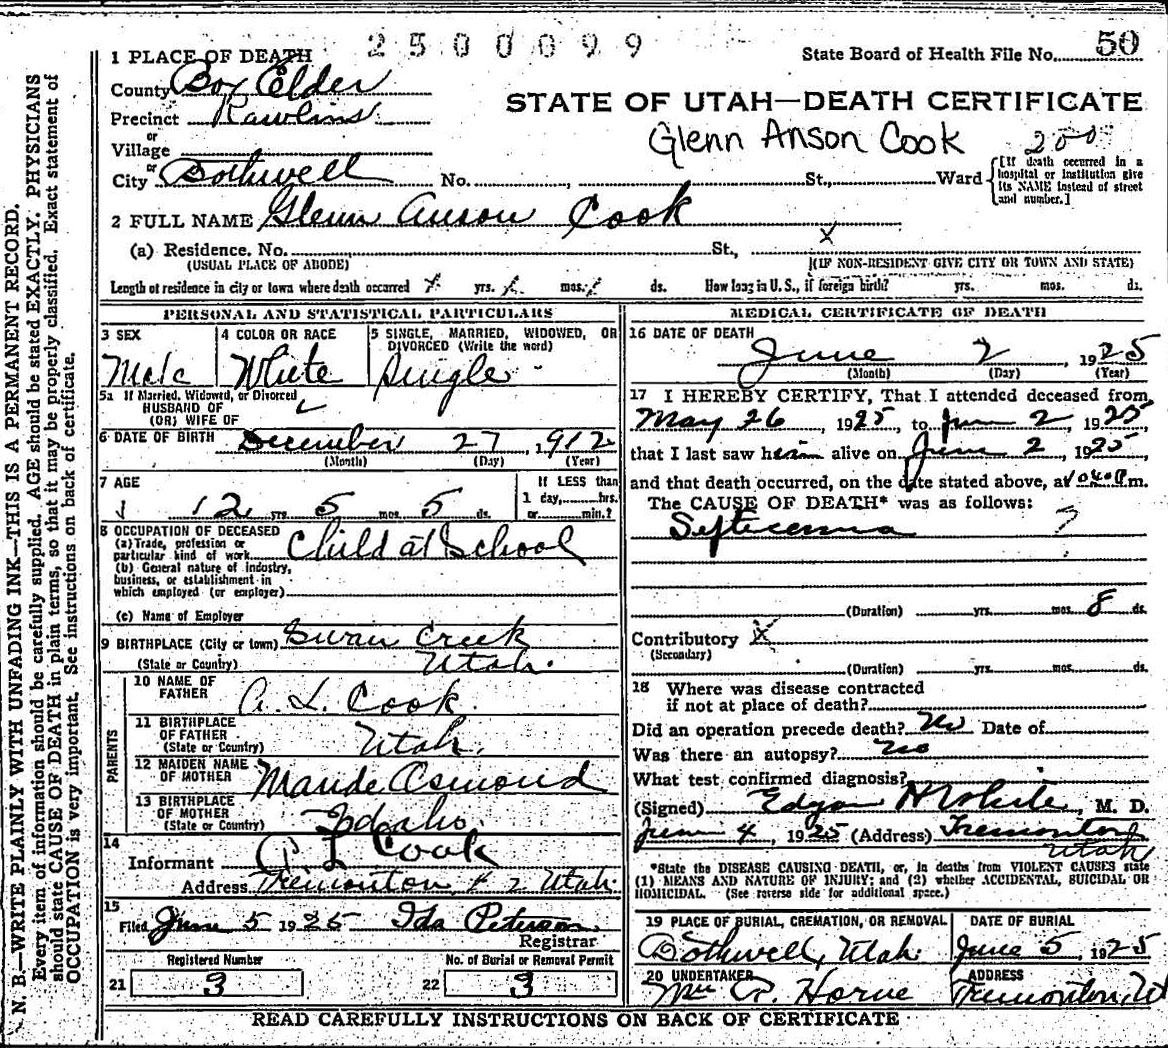 2500099
State Board of Health File No. 50
1 PLACE OF DEATH
County Box Elder
STATE OF UTAH—DEATH CERTIFICATE
Precinct Rawlins
Glenn Anson Cook
or
Village
or
City Bothwell No. , St., Ward
[If death occurred in a hospital or institution give its NAME instead of street and number.]
2 FULL NAME Glenn Anson Cook
(a) Residence. No. St., X
(USUAL PLACE OF ABODE) (IF NON-RESIDENT GIVE CITY OR TOWN AND STATE)
Length of residence in city or town where death occurred yrs. mos. ds. How long in U. S., if foreign birth? yrs. mos. ds.
PERSONAL AND STATISTICAL PARTICULARS
3 SEX Male
4 COLOR OR RACE White
5 SINGLE, MARRIED, WIDOWED, OR DIVORCED (Write the word) Single
5a If Married, Widowed, or Divorced
HUSBAND OF
(OR) WIFE OF
6 DATE OF BIRTH December 27, 1912
(Month) (Day) (Year)
7 AGE 12 yrs. 5 mos. 5 ds.
If LESS than
1 day, hrs.
or min.?
8 OCCUPATION OF DECEASED
(a) Trade, profession or
particular kind of work Child at School
(b) General nature of industry,
business, or establishment in
which employed (or employer)
(c) Name of Employer
9 BIRTHPLACE (City or town) Swan Creek
(State or Country) Utah.
PARENTS
10 NAME OF FATHER A. L. Cook.
11 BIRTHPLACE OF FATHER
(State or Country) Utah.
12 MAIDEN NAME OF MOTHER Maude Osmond
13 BIRTHPLACE OF MOTHER
(State or Country) Idaho.
14
Informant A L Cook
Address Tremonton # 2 Utah.
15
Filed June 5 1925 Ida Peterson
Registrar
Registered Number
21 3
No. of Burial or Removal Permit
22 3
MEDICAL CERTIFICATE OF DEATH
16 DATE OF DEATH
June 2, 1925
(Month) (Day) (Year)
17 I HEREBY CERTIFY, That I attended deceased from
May 26, 1925, to June 2, 1925,
that I last saw him alive on June 2, 1925,
and that death occurred, on the date stated above, at m.
The CAUSE OF DEATH* was as follows:
Septicemia ?
(Duration) yrs. mos. 8 ds.
Contributory X
(Secondary)
(Duration) yrs. mos. ds.
18 Where was disease contracted
if not at place of death?
Did an operation precede death? No Date of
Was there an autopsy? No
What test confirmed diagnosis?
(Signed) Edgar White, M. D.
June 4, 1925 (Address) Tremonton
Utah
*State the DISEASE CAUSING DEATH, or, in deaths from VIOLENT CAUSES state
(1) MEANS AND NATURE OF INJURY; and (2) whether ACCIDENTAL, SUICIDAL OR
HOMICIDAL. (See reverse side for additional space.)
19 PLACE OF BURIAL, CREMATION, OR REMOVAL
Bothwell, Utah.
DATE OF BURIAL
June 5, 1925
20 UNDERTAKER
Horne
ADDRESS
Tremonton, Ut
READ CAREFULLY INSTRUCTIONS ON BACK OF CERTIFICATE
N. B.—WRITE PLAINLY WITH UNFADING INK—THIS IS A PERMANENT RECORD.
Every item of information should be carefully supplied. AGE should be stated EXACTLY. PHYSICIANS
should state CAUSE OF DEATH in plain terms, so that it may be properly classified. Exact statement of
OCCUPATION is very important. See instructions on back of certificate.